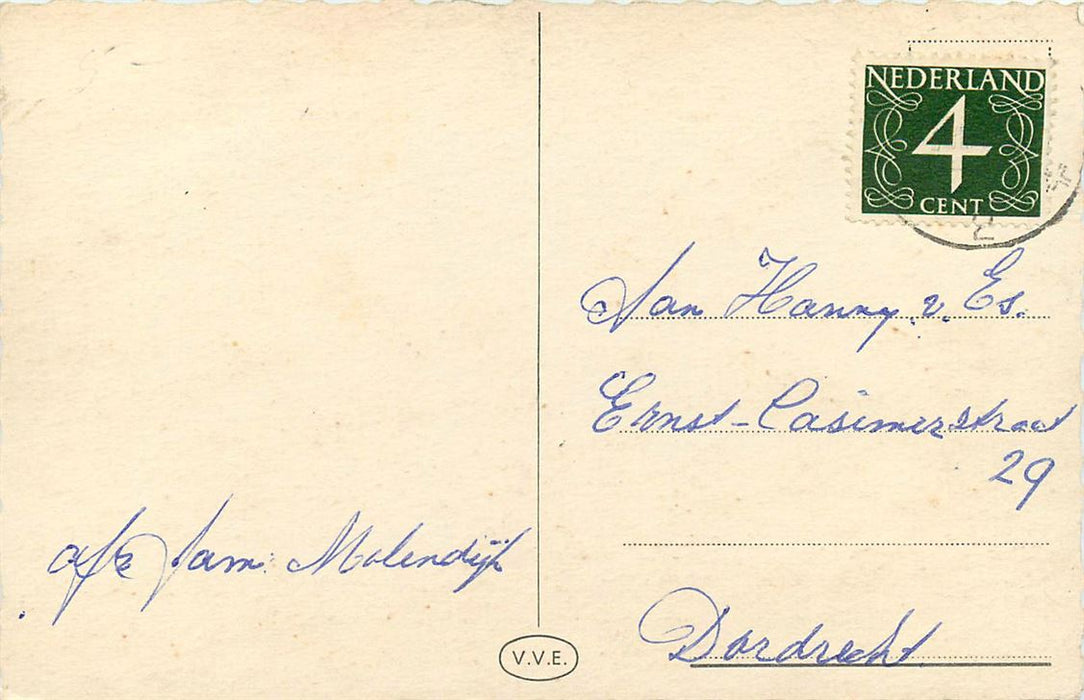 NEDERLAND
4
CENT
Aan Hanny v. Es.
Ernst-Casimirstraat
29
Dordrecht
afz fam: Molendijk
V.V.E.